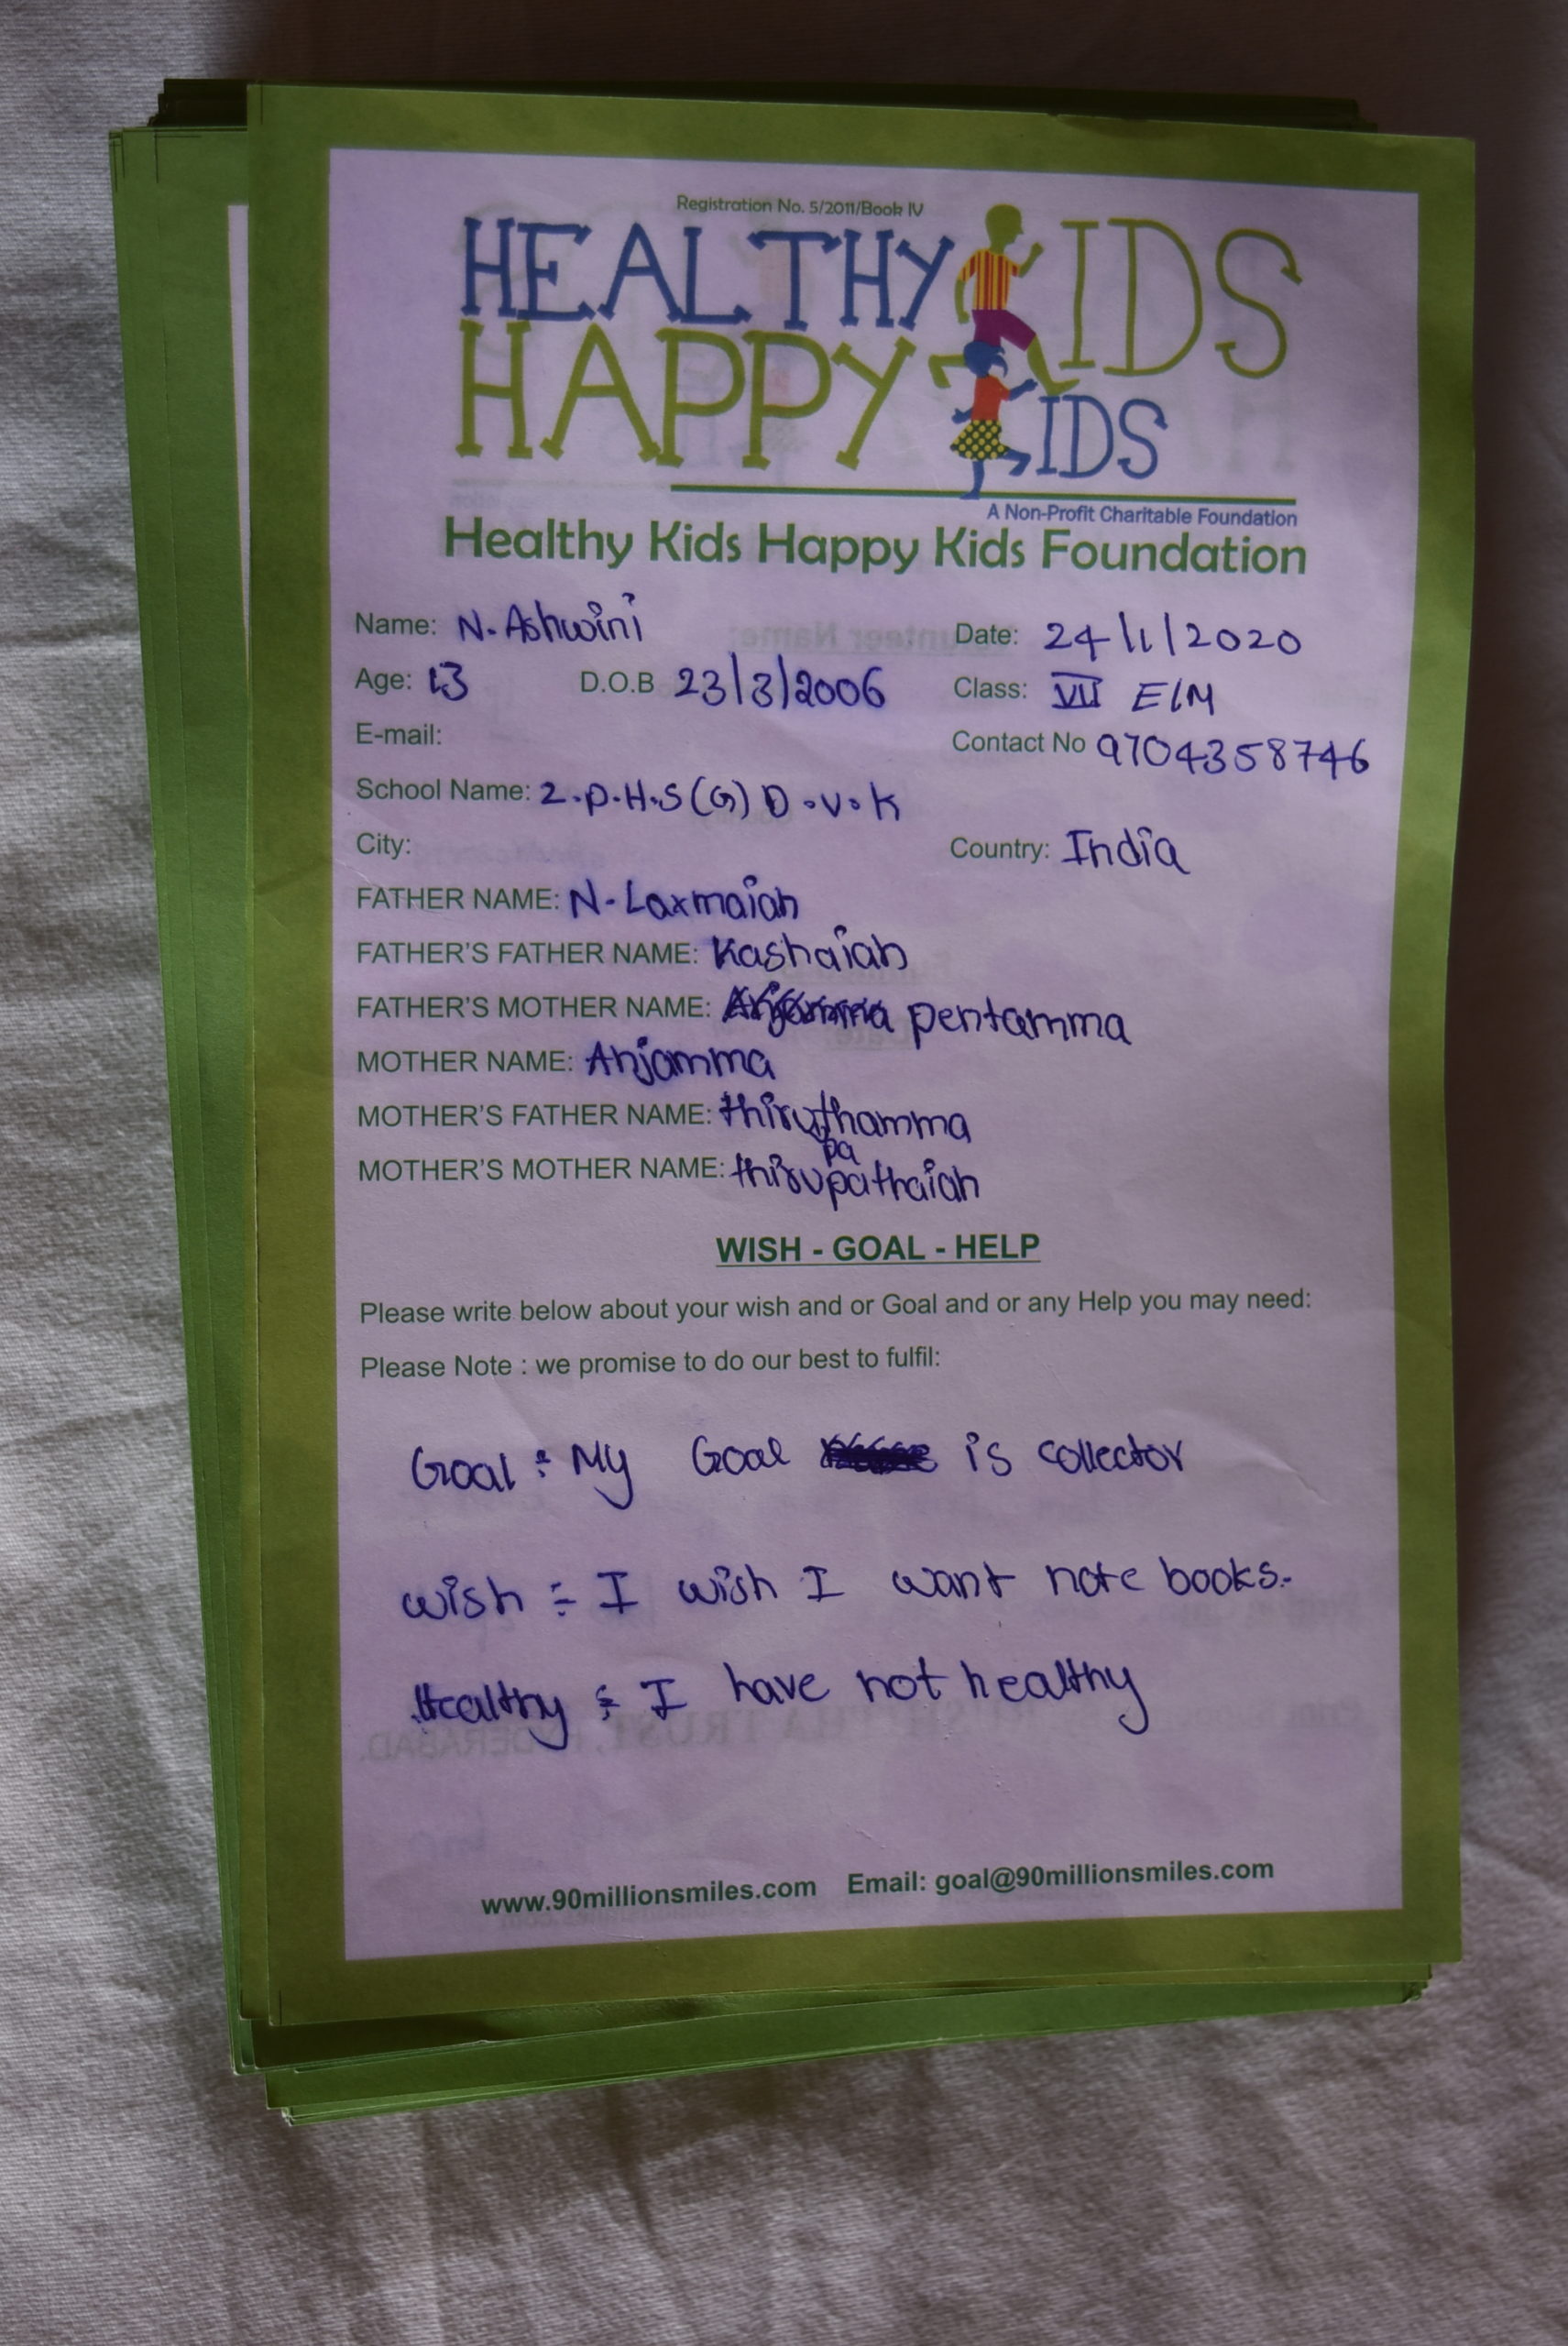 Registration No. 5/2011/Book IV
HEALTHY KIDS
HAPPY KIDS
A Non-Profit Charitable Foundation
Healthy Kids Happy Kids Foundation
Name: N. Ashwini Date: 24/1/2020
Age: 13 D.O.B 23/3/2006 Class: VII E/M
E-mail: Contact No 9704358746
School Name: 2.P.H.S (G) D.V.K
City: Country: India
FATHER NAME: N. Laxmaiah
FATHER'S FATHER NAME: Kashaiah
FATHER'S MOTHER NAME: Anjamma pentamma
MOTHER NAME: Anjamma
MOTHER'S FATHER NAME: thiruthamma
pa
MOTHER'S MOTHER NAME: thirupathaiah
WISH - GOAL - HELP
Please write below about your wish and or Goal and or any Help you may need:
Please Note : we promise to do our best to fulfil:
Goal : My Goal is collector
wish ÷ I wish I want note books.
Healthy : I have not healthy
www.90millionsmiles.com Email: goal@90millionsmiles.com